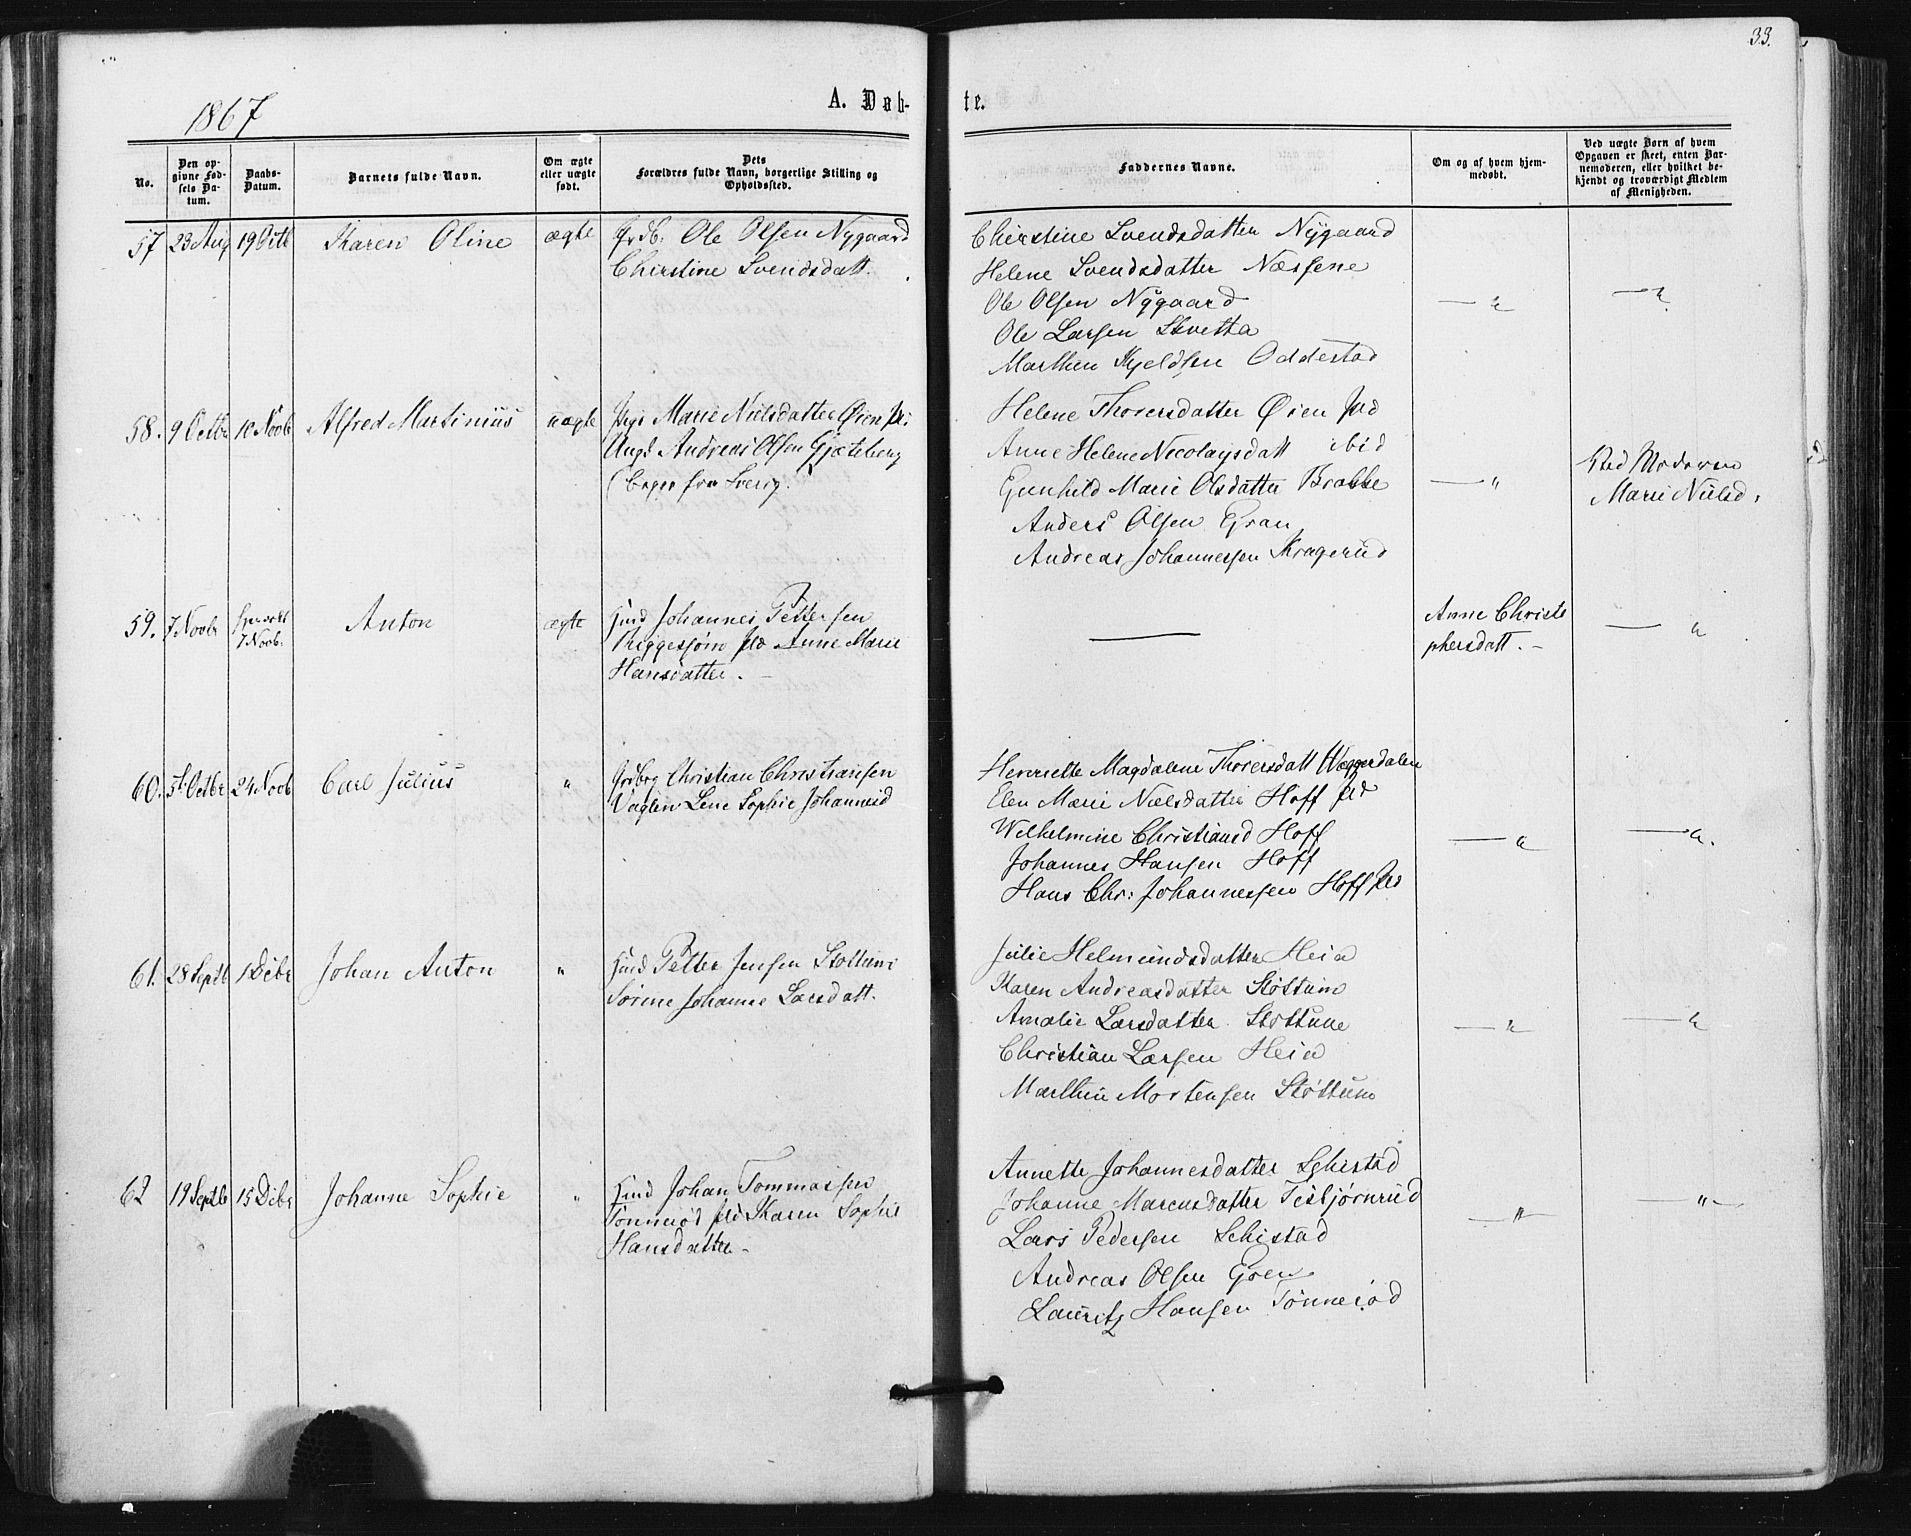 33.
1867
A. Døb-
te.
No.
Den op-
givne Fød-
sels Da-
tum.
Daabs-
Datum.
Barnets fulde Navn.
Om ægte
eller uægte
født.
Dets
Forældres fulde Navn, borgerlige Stilling og
Opholdssted.
Faddernes Navne.
Om og af hvem hjem-
medøbt.
Ved uægte Børn af hvem
Opgaven er skeet, enten Bar-
nemoderen, eller hvilket be-
kjendt og troværdigt Medlem
af Menigheden.
57 23 Aug 19 Octb Karen Oline ægte Grdb. Ole Olsen Nygaard
Chirstine Svendsdatt.
Chirstine Svendsdatter Nygaard
Helene Svendsdatter Næssene
Ole Olsen Nygaard
Ole Larsen
Marthin Kjeldsen Oddestad
58. 9 Octbr 10 Novb Alfred Martinius uægte Pige Marie Nielsdatter Øien
Ungk Andreas Olsen Gjøteborg
Borger fra Sverig.
Helene Thorersdatter Øien
Anne Helene Nicolaysdatt ibid
Gunhild Marie Olsdatter Brække
Anders Olsen Gran
Andreas Johannessen Kragerud
Ved Moderen
Marie Nielsd.
59. 7 Novbr 7 Novb. Anton ægte Huusd Johannes Pettersen
Anne Marie
Hansdatter. -
Anne Christo
phersdatt. -
60. 5t Octbr 24 Novb Carl Julius " Grdbrg Christian Christiansen
Vaglen Lene Sophie Johannesd
Henriette Magdalene Thorersdatt
Elen Marie Nielsdatter Hoff
Wilhelmine Christiansd Hoff
Johannes Hansen Hoff
Hans Chr: Johannessen Hoff
61. 28 Septb 1 Dcbr Johan Anton " Huusd Petter Jensen Støttum
Sørine Johanne Larsdatt.
Julie Helmundsdatter Heia
Karen Andreasdatter Støttum
Amalie Larsdatter Støttum
Christian Larsen Heia
Marthin Mortensen Støttum
62 19 Septb 15 Dcbr Johanne Sophie " Huusd Johan Tommassen
Tønnerød Karen Sophie
Hansdatter -
Annette Johannesdatter Schistad
Johanne Marcusdatter Tisbjørnrud
Lars Pedersen Schistad
Andreas Olsen Gren
Lauritz Hansen Tønnerød